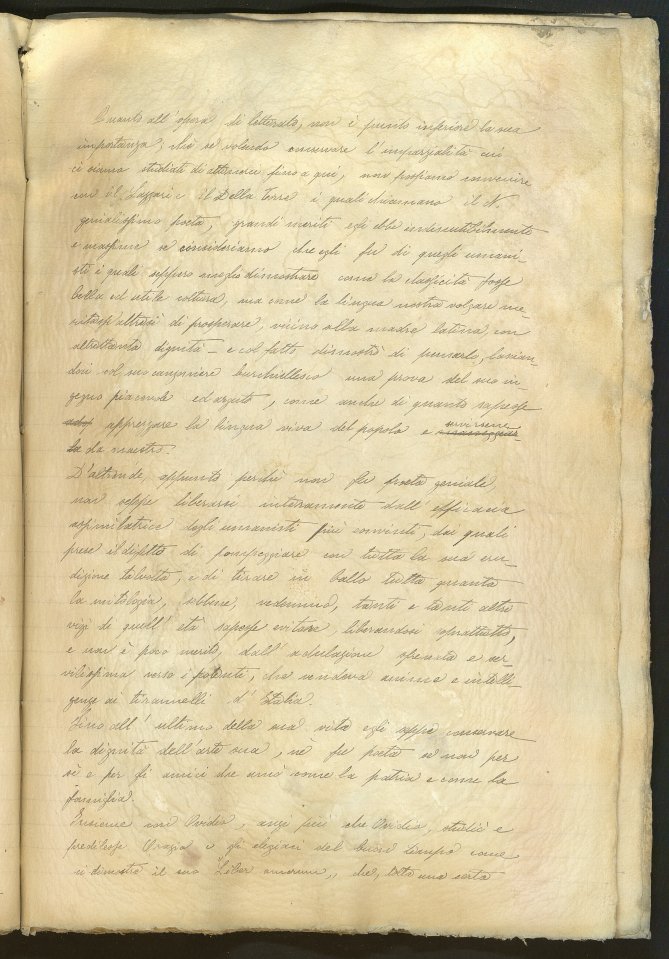 Quanto all'opera di letterato, non è punto inferiore la sua
importanza; chè se volendo conservare l'imparzialità cui
ci siamo studiati di attenerci fino a qui, non possiamo convenire
con il Lazzari e il Della Torre i quali chiamano il N.
genialissimo poeta, grandi meriti egli ebbe indiscutibilmente
e massime se consideriamo che egli fu di quegli umani-
sti i quali seppero meglio dimostrare come la classicità fosse
bella ed utile coltura, ma come la lingua nostra volgare me-
ritasse altresì di prosperare, vicino alla madre latina, con
altrettanta dignità - e col fatto dimostrò di pensarlo, lascian-
doci col suo canzoniere burchiellesco una prova del suo in-
gegno piacevole ed arguto, come anche di quanto sapesse
apprezzare la lingua viva del popolo e servirsene
da maestro.
D'altronde, appunto perchè non fu poeta geniale
non seppe liberarsi interamente dall'efficacia
assimilatrice degli umanisti più convinti, dai quali
prese il difetto di pompeggiare con tutta la sua eru-
dizione talvolta, e di tirare in ballo tutta quanta
la mitologia, sebbene, vedemmo, tanti e tanti altri
vizi di quell'età sapesse evitare, liberandosi soprattutto,
e non è poco merito, dall'adulazione sfrenata e ser-
vilissima verso i potenti, che vendeva anime e intelli-
genze ai tirannelli d'Italia.
Fino all'ultimo della sua vita egli seppe conservare
la dignità dell'arte sua, nè fu poeta se non per
sè e per gli amici che amò come la patria e come la
famiglia.
Insieme con Ovidio, anzi più che Ovidio, studiò e
predilesse Orazio e gli elegiaci del buon tempo come
ci dimostra il suo "Liber amorum", che, tolta una certa